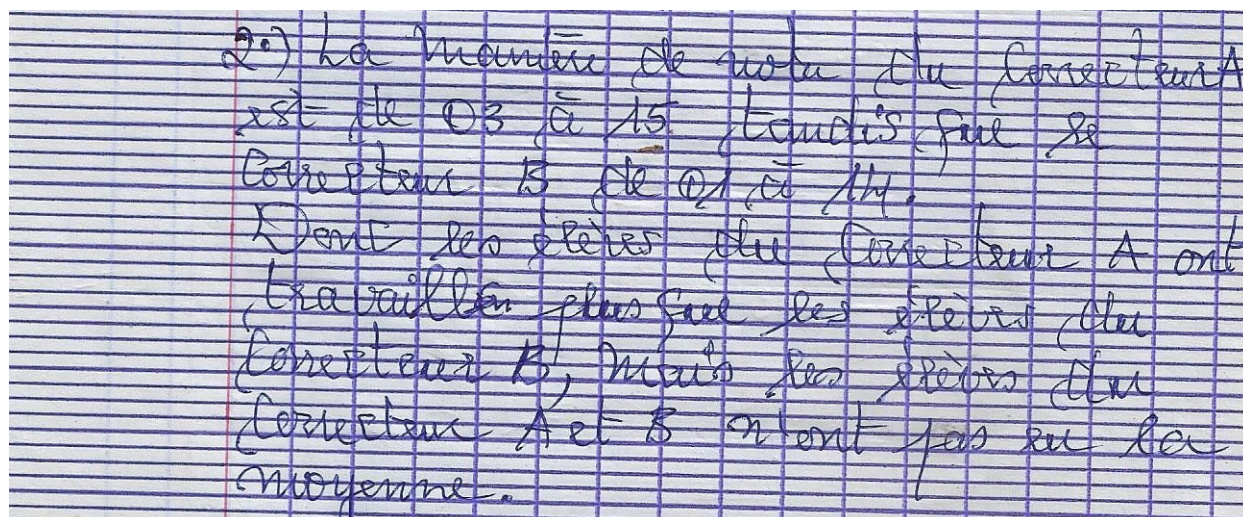 2°) La manière de noter du Correcteur A
est de 03 à 15 tandis que le
Correcteur B de 01 à 14.
Donc les élèves du Correcteur A ont
travaillés plus que les élèves du
Correcteur B, mais les élèves du
Correcteur A et B n'ont pas eu la
moyenne.